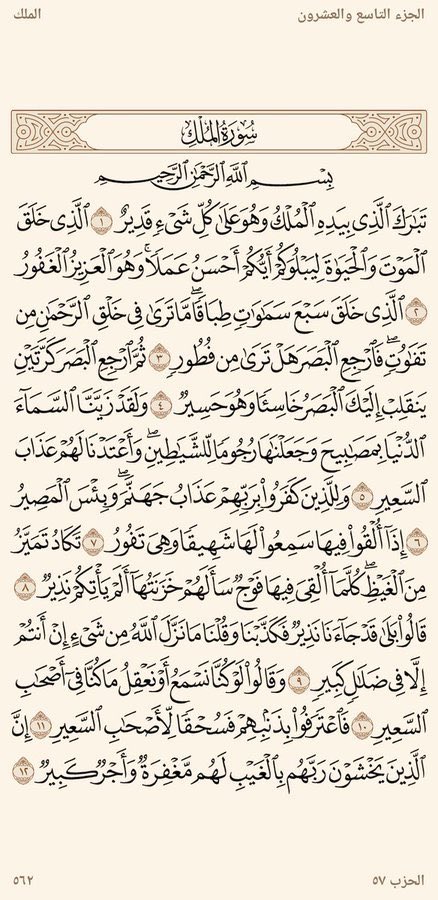 الجزء التاسع والعشرون
الملك
سُورَةُ الْمُلْكِ
بِسْمِ اللَّهِ الرَّحْمَٰنِ الرَّحِيمِ
تَبَارَكَ الَّذِي بِيَدِهِ الْمُلْكُ وَهُوَ عَلَىٰ كُلِّ شَيْءٍ قَدِيرٌ ١ الَّذِي خَلَقَ
الْمَوْتَ وَالْحَيَاةَ لِيَبْلُوَكُمْ أَيُّكُمْ أَحْسَنُ عَمَلًا ۚ وَهُوَ الْعَزِيزُ الْغَفُورُ
٢ الَّذِي خَلَقَ سَبْعَ سَمَاوَاتٍ طِبَاقًا ۖ مَّا تَرَىٰ فِي خَلْقِ الرَّحْمَٰنِ مِن
تَفَاوُتٍ ۖ فَارْجِعِ الْبَصَرَ هَلْ تَرَىٰ مِن فُطُورٍ ٣ ثُمَّ ارْجِعِ الْبَصَرَ كَرَّتَيْنِ
يَنقَلِبْ إِلَيْكَ الْبَصَرُ خَاسِئًا وَهُوَ حَسِيرٌ ٤ وَلَقَدْ زَيَّنَّا السَّمَاءَ
الدُّنْيَا بِمَصَابِيحَ وَجَعَلْنَاهَا رُجُومًا لِّلشَّيَاطِينِ ۖ وَأَعْتَدْنَا لَهُمْ عَذَابَ
السَّعِيرِ ٥ وَلِلَّذِينَ كَفَرُوا بِرَبِّهِمْ عَذَابُ جَهَنَّمَ ۖ وَبِئْسَ الْمَصِيرُ
٦ إِذَا أُلْقُوا فِيهَا سَمِعُوا لَهَا شَهِيقًا وَهِيَ تَفُورُ ٧ تَكَادُ تَمَيَّزُ
مِنَ الْغَيْظِ ۖ كُلَّمَا أُلْقِيَ فِيهَا فَوْجٌ سَأَلَهُمْ خَزَنَتُهَا أَلَمْ يَأْتِكُمْ نَذِيرٌ ٨
قَالُوا بَلَىٰ قَدْ جَاءَنَا نَذِيرٌ فَكَذَّبْنَا وَقُلْنَا مَا نَزَّلَ اللَّهُ مِن شَيْءٍ إِنْ أَنتُمْ
إِلَّا فِي ضَلَالٍ كَبِيرٍ ٩ وَقَالُوا لَوْ كُنَّا نَسْمَعُ أَوْ نَعْقِلُ مَا كُنَّا فِي أَصْحَابِ
السَّعِيرِ ١٠ فَاعْتَرَفُوا بِذَنبِهِمْ فَسُحْقًا لِّأَصْحَابِ السَّعِيرِ ١١ إِنَّ
الَّذِينَ يَخْشَوْنَ رَبَّهُم بِالْغَيْبِ لَهُم مَّغْفِرَةٌ وَأَجْرٌ كَبِيرٌ ١٢
الحزب ٥٧
٥٦٢